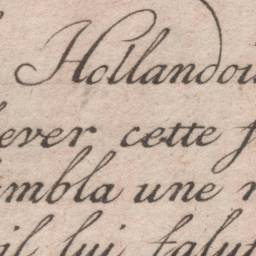 Hollandois
ever cette
mbla une
il lui falut